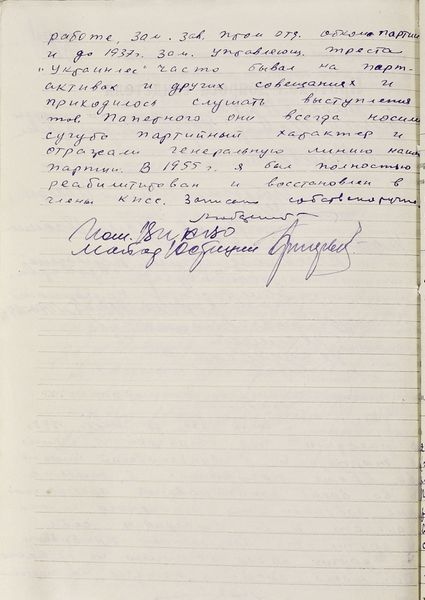 работе, зам. зав. пром отд. обкома партии
и до 1937г. зам. управляющ. треста
„Украинлес" часто бывал на парт-
активах и других совещаниях и
приходилось слушать выступления
тов. Паперного они всегда носили
сугубо партийный характер и
отражали генеральную линию нашей
партии. В 1955 г. я был полностью
реабилитирован и восстановлен в
члены КПСС. Записано собственоручно
Пом. ВП КВО
майор юстиции